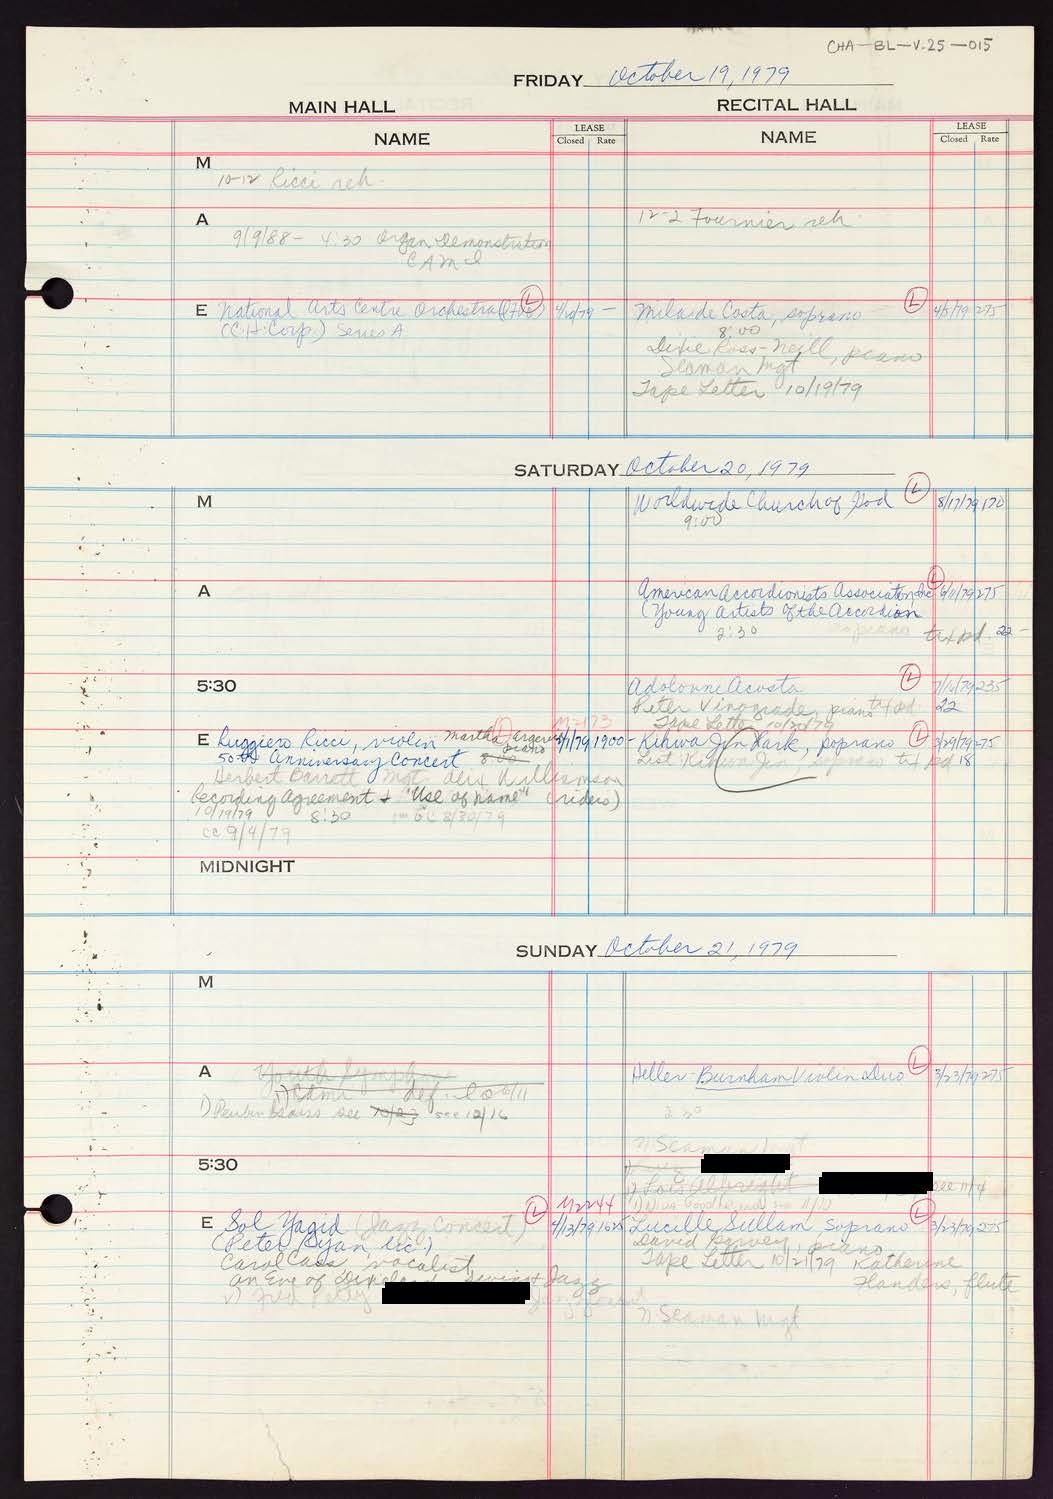 CHA-BL-V-25-015
FRIDAY October 19, 1979
MAIN HALL
RECITAL HALL
NAME
LEASE
Closed Rate
NAME
LEASE
Closed Rate
M
10-12 Ricci reh.
A
12-2 Fournier reh.
9/9/88- 4:30 Organ Demonstration
CAMI
E National Arts Centre Orchestra
(C.H. Corp.) Series A
L
Mila de Costa, soprano
L 4/5/79 275
8:00
Dixie Ross-Neill, piano
Seaman Mgt
Tape Letter 10/19/79
SATURDAY October 20, 1979
M
Worldwide Church of God
L 8/17/79 170
9:00
A
American Accordionists Association, Inc
L 6/11/79 275
(Young Artists of the Accordion
2:30 soprano
tx pd. 22-
5:30
Adolovne Acosta
L 7/16/79 235
Peter Vinograde, piano tx pd 22
Tape Letter 10/20/79
M-2173
E Ruggiero Ricci, violin Martha Argerich piano
L 1900-
50th Anniversary Concert 8:00
Kihwa Jin Park, soprano
L 3/29/79 275
List: Kihwa Jin, soprano tx pd 18
Herbert Barrett Mgt. Alix Williamson
Recording Agreement + "Use of name" (riders)
10/19/79 8:30 8/30/79
cc 9/4/79
MIDNIGHT
SUNDAY October 21, 1979
M
A
Youth Symphony
CAMI def.
see 10/23 see 12/16
Heller-Burnham Violin Duo
L 3/23/79 275
2:30
7) Seaman Mgt
5:30
Lois Albright
see 11/4
M2244
E Sol Yaged (Jazz Concert)
L 4/13/79 1625
(Peter Ryan, lic.)
Carol Cass, vocalist
An Eve of Dixieland, Swing + Jazz
Fred Petty
Lucille Sullam Soprano
L 3/23/79 275
David Garvey, piano
Tape Letter 10/21/79 Katherine
Flanders, flute
7) Seaman Mgt